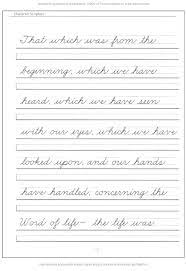 That which was from the
beginning, which we have
heard, which we have seen
with our eyes, which we have
looked upon, and our hands
have handled, concerning the
Word of life– the life was